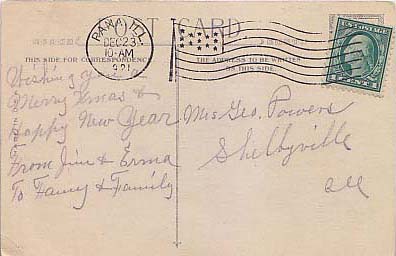 POST CARD
PANA, ILL.
DEC 23
10-AM
1921
THIS SPACE FOR CORRESPONDENCE
THE ADDRESS TO BE WRITTEN
ON THIS SIDE.
Wishing you
Merry Xmas &
Happy New Year
From Jim & Erma
To Fanny & Family
Mrs Geo. Powers
Shelbyville
Ill